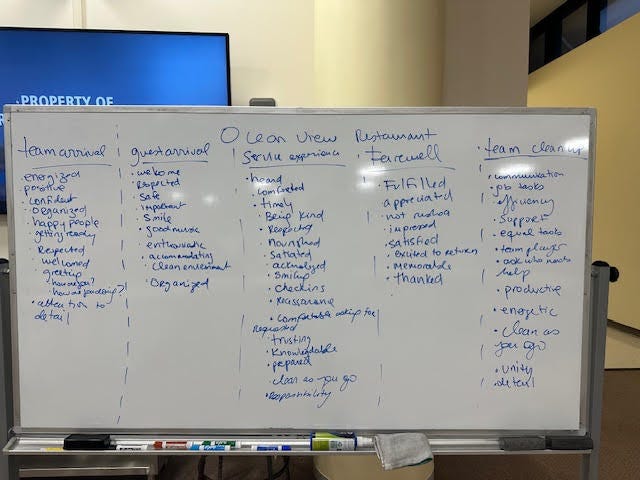 PROPERTY OF
Ocean View Restaurant
team arrival
energized
positive
confident
organized
happy people
getting ready
Respected
welcomed
greeting
how are you?
attention to
detail
guest arrival
welcome
respected
safe
important
smile
good music
enthusiastic
accommodating
clean environment
organized
Service experience
heard
comforted
timely
Being kind
Respected
nourished
satiated
smiling
checkins
reassurance
comfortable asking for
Requested
trusting
knowledgable
prepared
clean as you go
Responsibility
Farewell
Fulfilled
appreciated
not rushed
impressed
satisfied
excited to return
memorable
thanked
team clean up
communication
job tasks
efficiency
support
equal tasks
team player
ask who needs
help
productive
energetic
clean as
you go
unity
detail